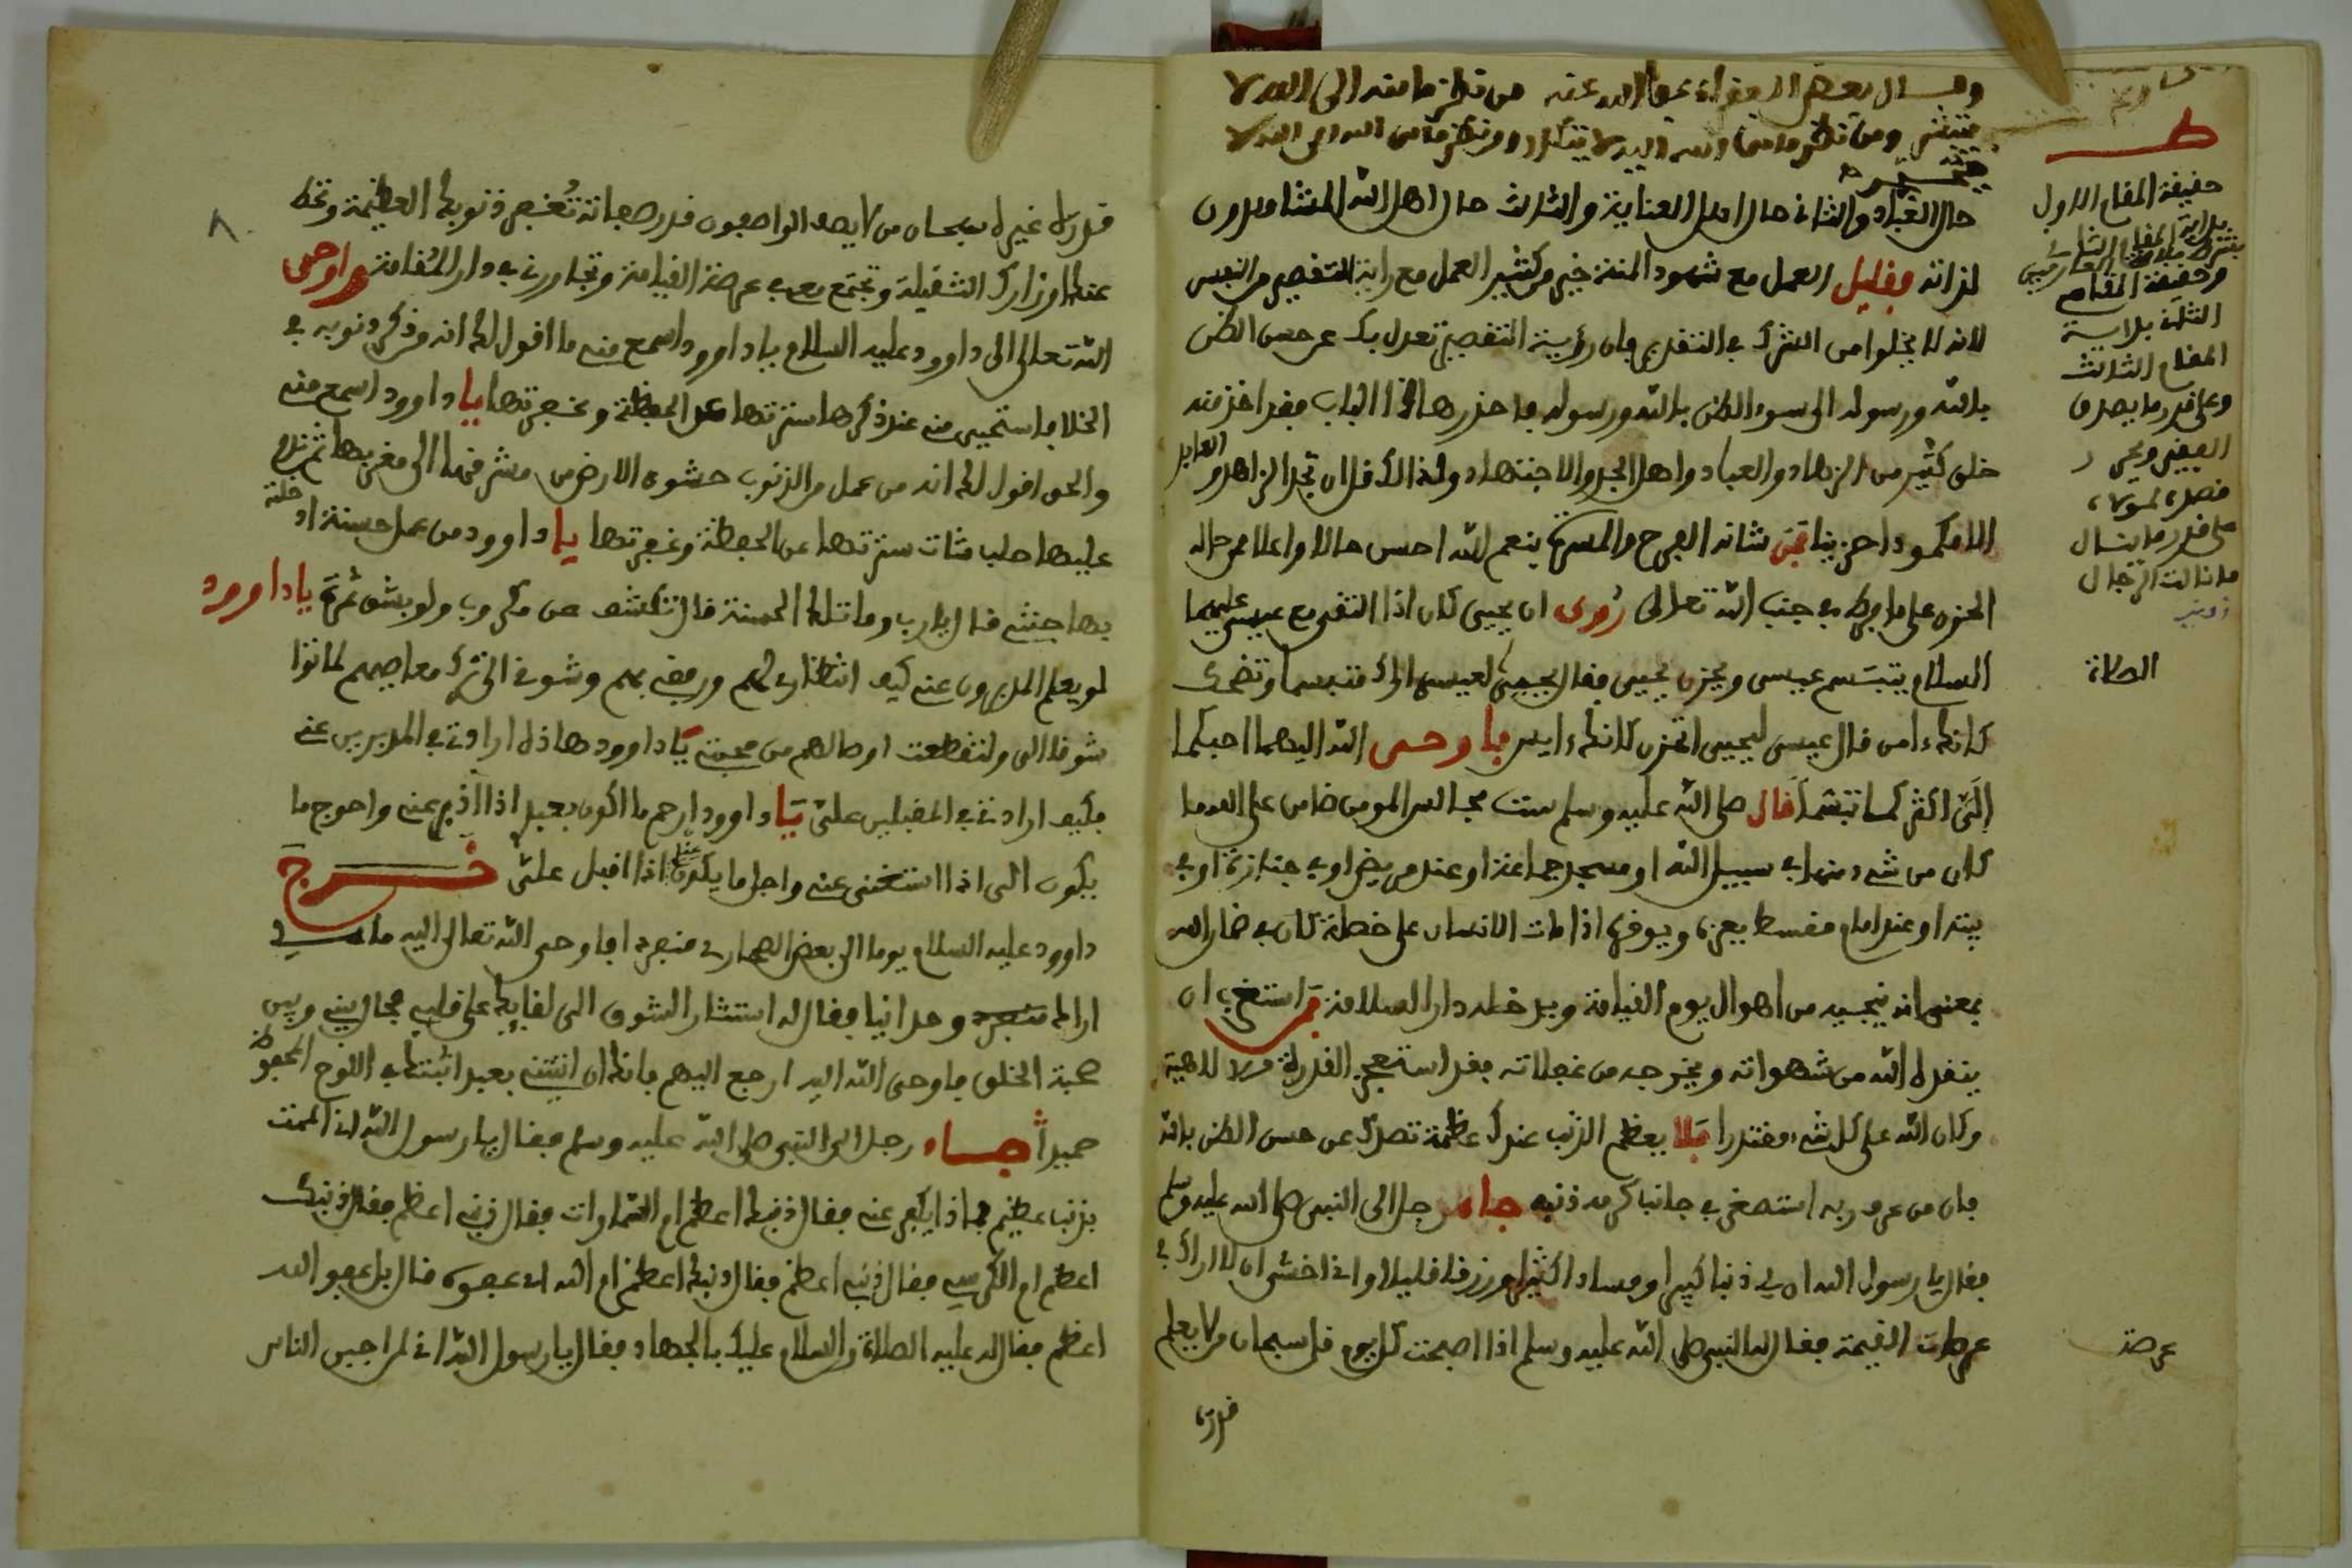 وسال بعض الفقراء عفا الله عنه من نظر ما منه الى الله لا
ومن نظر ما من الله اليه لا ومن نظر ما من الله الى الله لا
حال العباد والثاني حال اهل العناية والثالث حال اهل الله المشاهدون
لذاته فقليل العمل مع شهود المنة خير من كثير العمل مع راية التقصير من النفس
لانه لا يخلوا من الشرك في التقدير فان رؤية التقصير تعدل بك عن حسن الظن
بالله ورسوله الى سوء الظن بالله ورسوله فاحذر هاذا الباب فقد اخذ منه
خلق كثير من الزهاد والعباد واهل الجد والاجتهاد ولذالك قل ان تجد الزاهد والعابد
الا مكمودا حزينا فمن شانه الفرح والمسرة بنعم الله احسن حالا واعلا من حاله
الحزن على ما فرط في جنب الله تعالى روى ان يحيى كان اذا التقى مع عيسى عليهما
السلام يتبسم عيسى ويحزن يحيى فقال يحيى لعيسى اراك متبسما وتضحك
كانك ءامن قال عيسى ليحيى اتحزن كانك ءايس فاوحى الله اليهما احبكما
الي اكثركما تبشما قال صلى الله عليه وسلم ست مجالس المومن ضامن على الله ما
كان من شيء منها في سبيل الله او مسجد جماعة او عند مريض او في جنازة او في
بيته او عند امام مقسط يعزره ويوقره اذا مات الانسان على خصلة كان في ضمان الله
بمعنى انه ينجيه من اهوال يوم القيامة ويدخله دار السلامة من استغرب ان
ينقذه الله من شهواته ويخرجه من غفلاته فقد استعجز القدرة الالاهية
وكان الله على كل شيء مقتدرا فلا يعظم الذنب عندك عظمة تصدك عن حسن الظن بالله
فان من عرف ربه استصغر في جانب كرمه ذنبه جاء رجل الى النبي صلى الله عليه وسلم
فقال يا رسول الله ان لي ذنبا كبيرا وفسادا كثيرا ورزقا قليلا واني اخشى ان لا اراك في
عرصات القيمة فقال له النبي صلى الله عليه وسلم اذا اصبحت كل يوم قل سبحان من لا يعلم
قدره
حقيقة المقام الاول
بداية المقام الثاني
وحقيقة المقام
الثاني بداية
المقام الثالث
وعلى قدر ما يصدق
الفقير
قصده لمولاه
على قدر ما ينال
ما نالت الرجال
الصلاة
عرصة
٨
قدره غيره سبحان من لا يصف الواصفون قدر صفاته تُغفر ذنوبك العظيمة وتحط
عنك اوزارك الثقيلة وتجتمع معي في عرصة القيامة وتجاورني في دار المُقامة واوحى
الله تعالى الى داوود عليه السلام يا داوود اسمع مني ما اقول لك انه من ذكر ذنوبه في
الخلا فاستحيى مني عند ذكرها سترتها عن الحفظة وغفرتها يا داوود اسمع مني
والحق اقول لك انه من عمل من الذنوب حشو الارض من مشرقها الى مغربها ثم ندم
عليها حلب شات سترتها عن الحفظة وغفرتها يا داوود من عمل حسنة ادخلته
بها جنتي قال يا رب وما تلك الحسنة قال تكشف عن مكروب ولو بشق تمرة يا داوود
لو يعلم المدبرون عني كيف انتظاري لهم ورفقي بهم وشوقي الى ترك معاصيهم لماتوا
شوقا الى ولتقطعت اوصالهم من محبتي يا داوود هاذه ارادتي في المدبرين عني
فكيف ارادتي في المقبلين علي يا داوود ارحم ما اكون بعبد اذا ادبر عني واحوج ما
يكون الى اذا استغنى عني واجل ما يكون عندي اذا اقبل علي خرج
داوود عليه السلام يوما الى بعض الصحارى منفردا فاوحى الله تعالى اليه مالي
اراك وحدانيا فقال له استثار الشوق الى لقايك على قلبي فحال بيني وبين
صحبة الخلق فاوحى الله اليه ارجع اليهم فانك ان اتيتني بعبد اثبتك في اللوح المحفوظ
حميدا جاء رجل الى النبي صلى الله عليه وسلم فقال يا رسول الله اني الممت
بذنب عظيم فماذا يكفر عني فقال ذنبك اعظم ام السماوات فقال ذنبي اعظم فقال ذنبك
اعظم ام الكرسي فقال ذنبي اعظم فقال ذنبك اعظم ام الله اي عفوه قال بل عفو الله
اعظم فقال له عليه الصلاة والسلام عليك بالجهاد فقال يا رسول الله اني لمن اجبن الناس